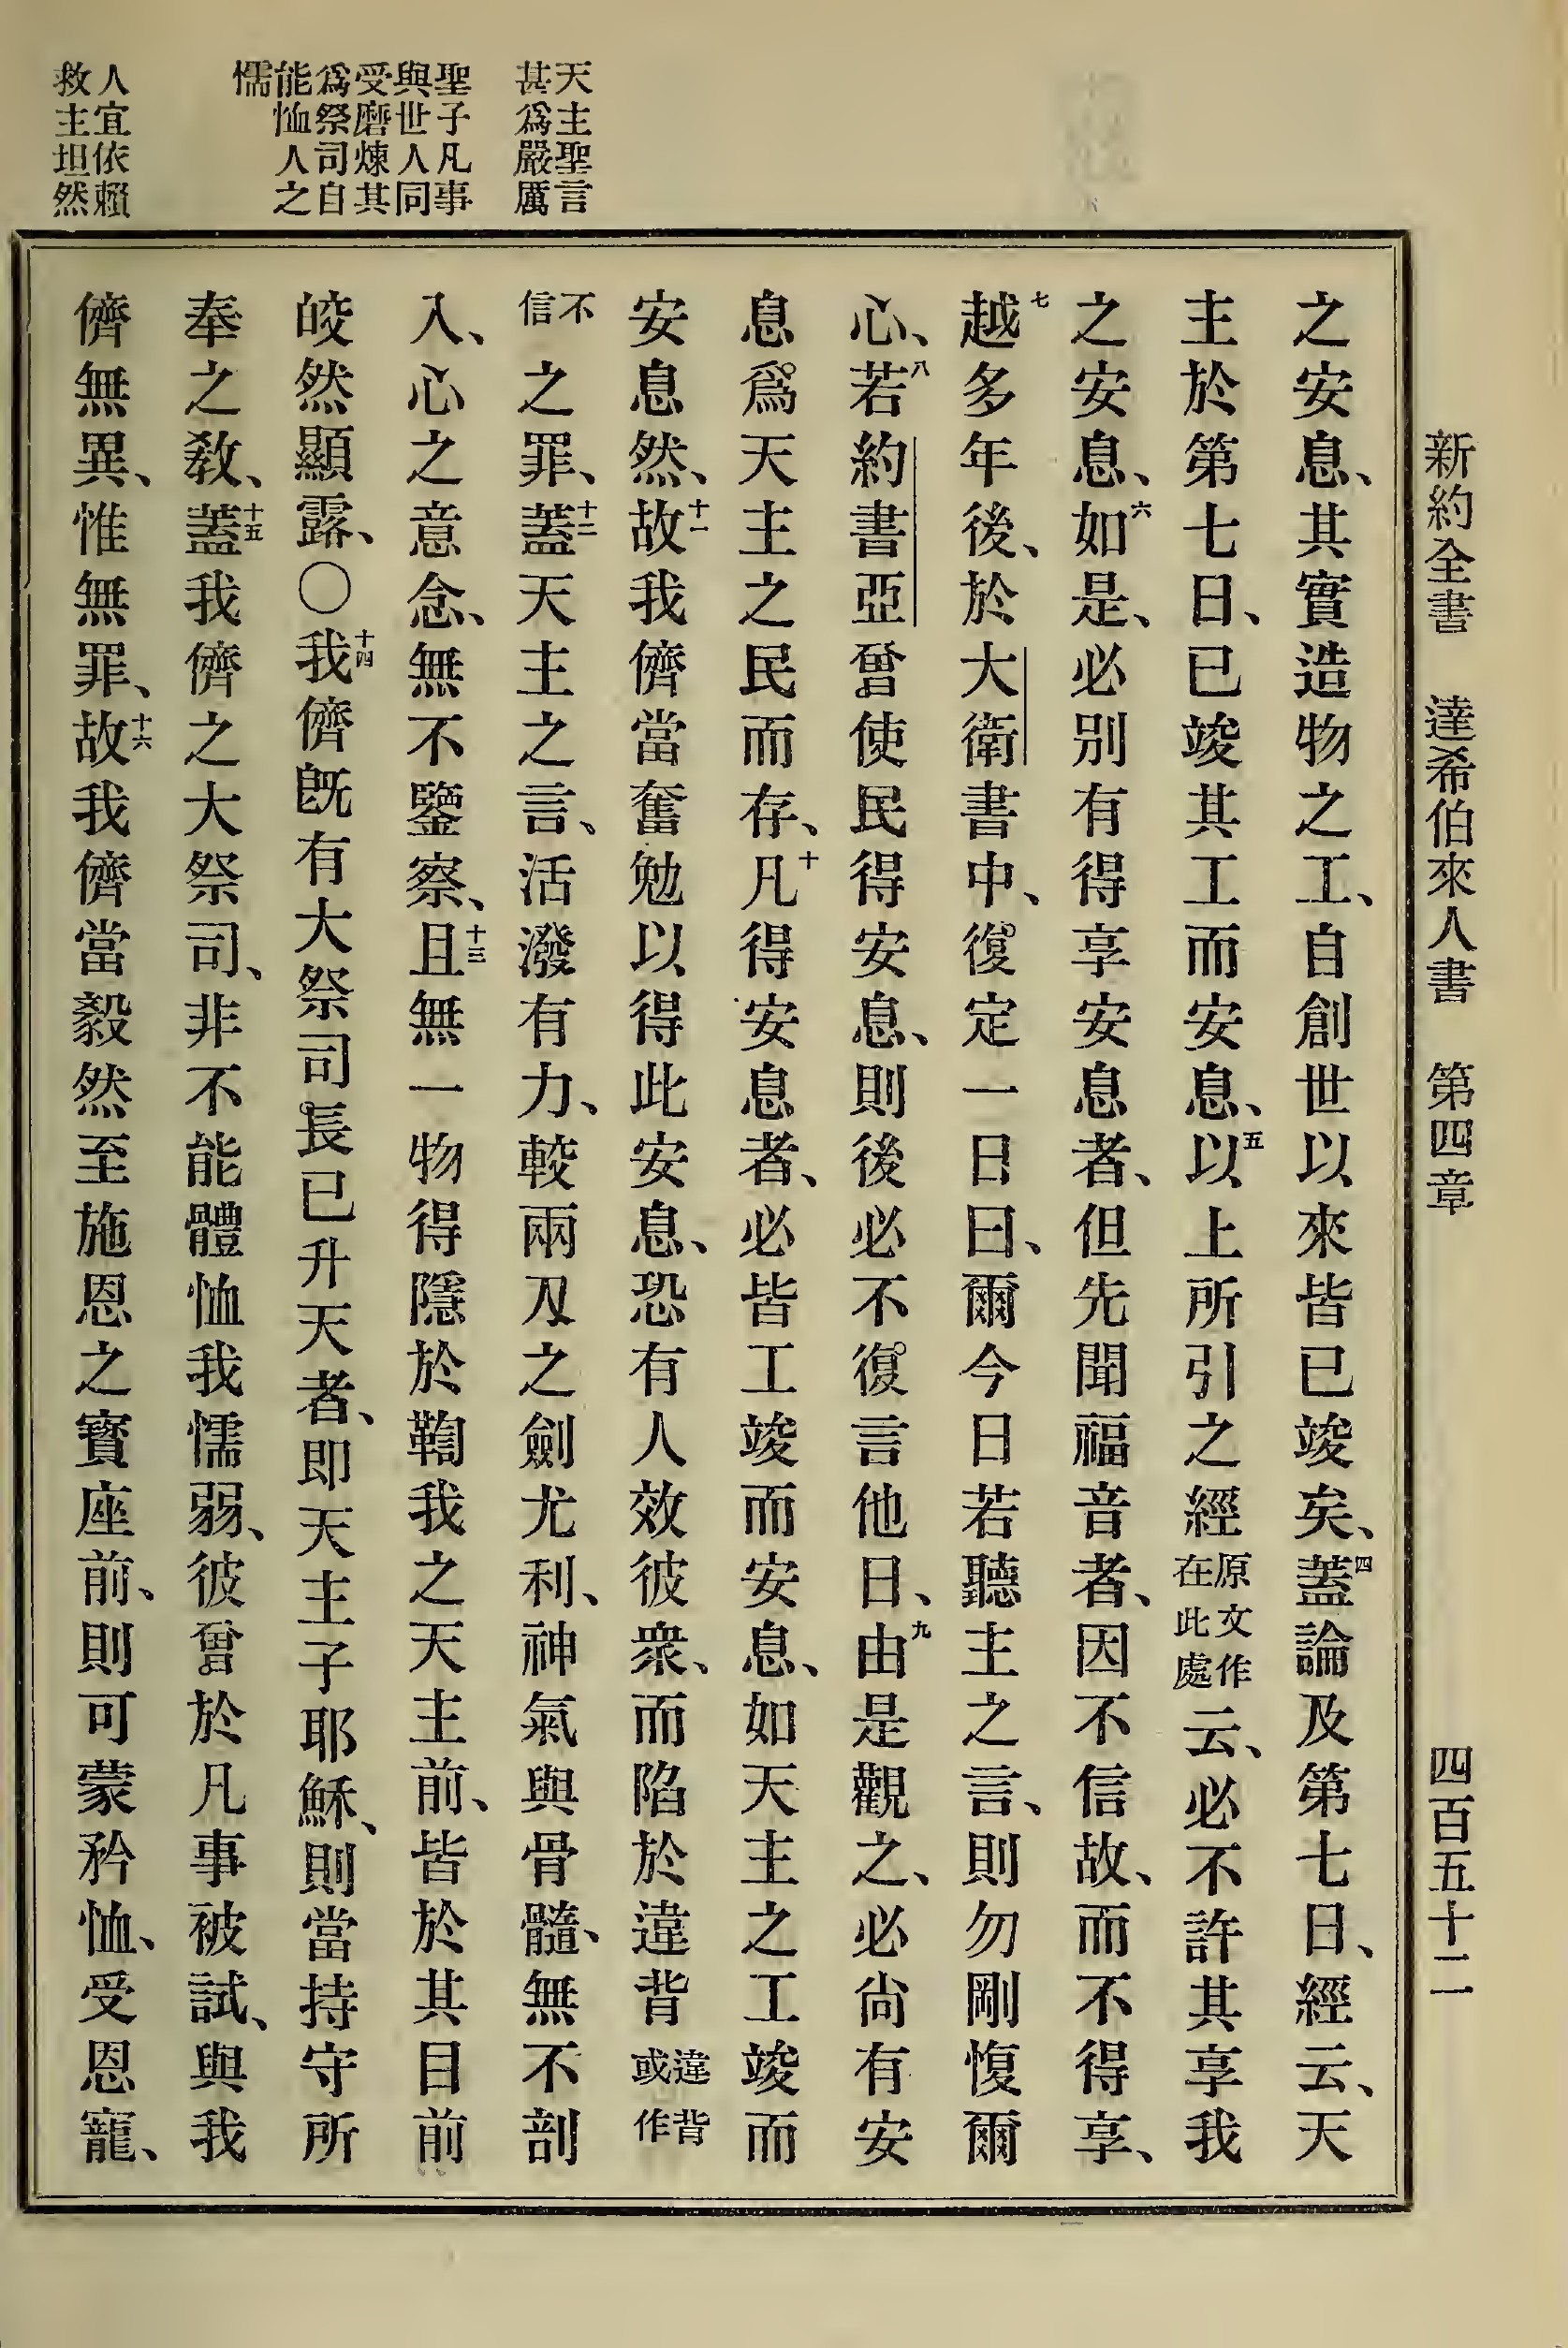 新約全書 達希伯來人書 第四章 四百五十二
天主聖言
甚爲嚴厲
聖子凡事
與世人同
受磨煉其
爲祭司自
能恤人之
懦
人宜依賴
救主坦然
之安息、其實造物之工、自創世以來皆已竣矣、四蓋論及第七日、經云、天
主於第七日、已竣其工而安息、五以上所引之經原文作在此處云、必不許其享我
之安息、六如是、必別有得享安息者、但先聞福音者、因不信故、而不得享、
七越多年後、於大衛書中、復定一日曰、爾今日若聽主之言、則勿剛愎爾
心、八若約書亞曾使民得安息、則後必不復言他日、九由是觀之、必尙有安
息爲天主之民而存、十凡得安息者、必皆工竣而安息、如天主之工竣而
安息然、十一故我儕當奮勉以得此安息、恐有人效彼衆、而陷於違背違背或作
不信之罪、十二蓋天主之言、活潑有力、較兩刃之劍尤利、神氣與骨髓、無不剖
入、心之意念、無不鑒察、十三且無一物得隱於鞫我之天主前、皆於其目前
皎然顯露、〇十四我儕旣有大祭司長已升天者、即天主子耶穌、則當持守所
奉之敎、十五蓋我儕之大祭司、非不能體恤我懦弱、彼曾於凡事被試、與我
儕無異、惟無罪、十六故我儕當毅然至施恩之寳座前、則可蒙矜恤、受恩寵、